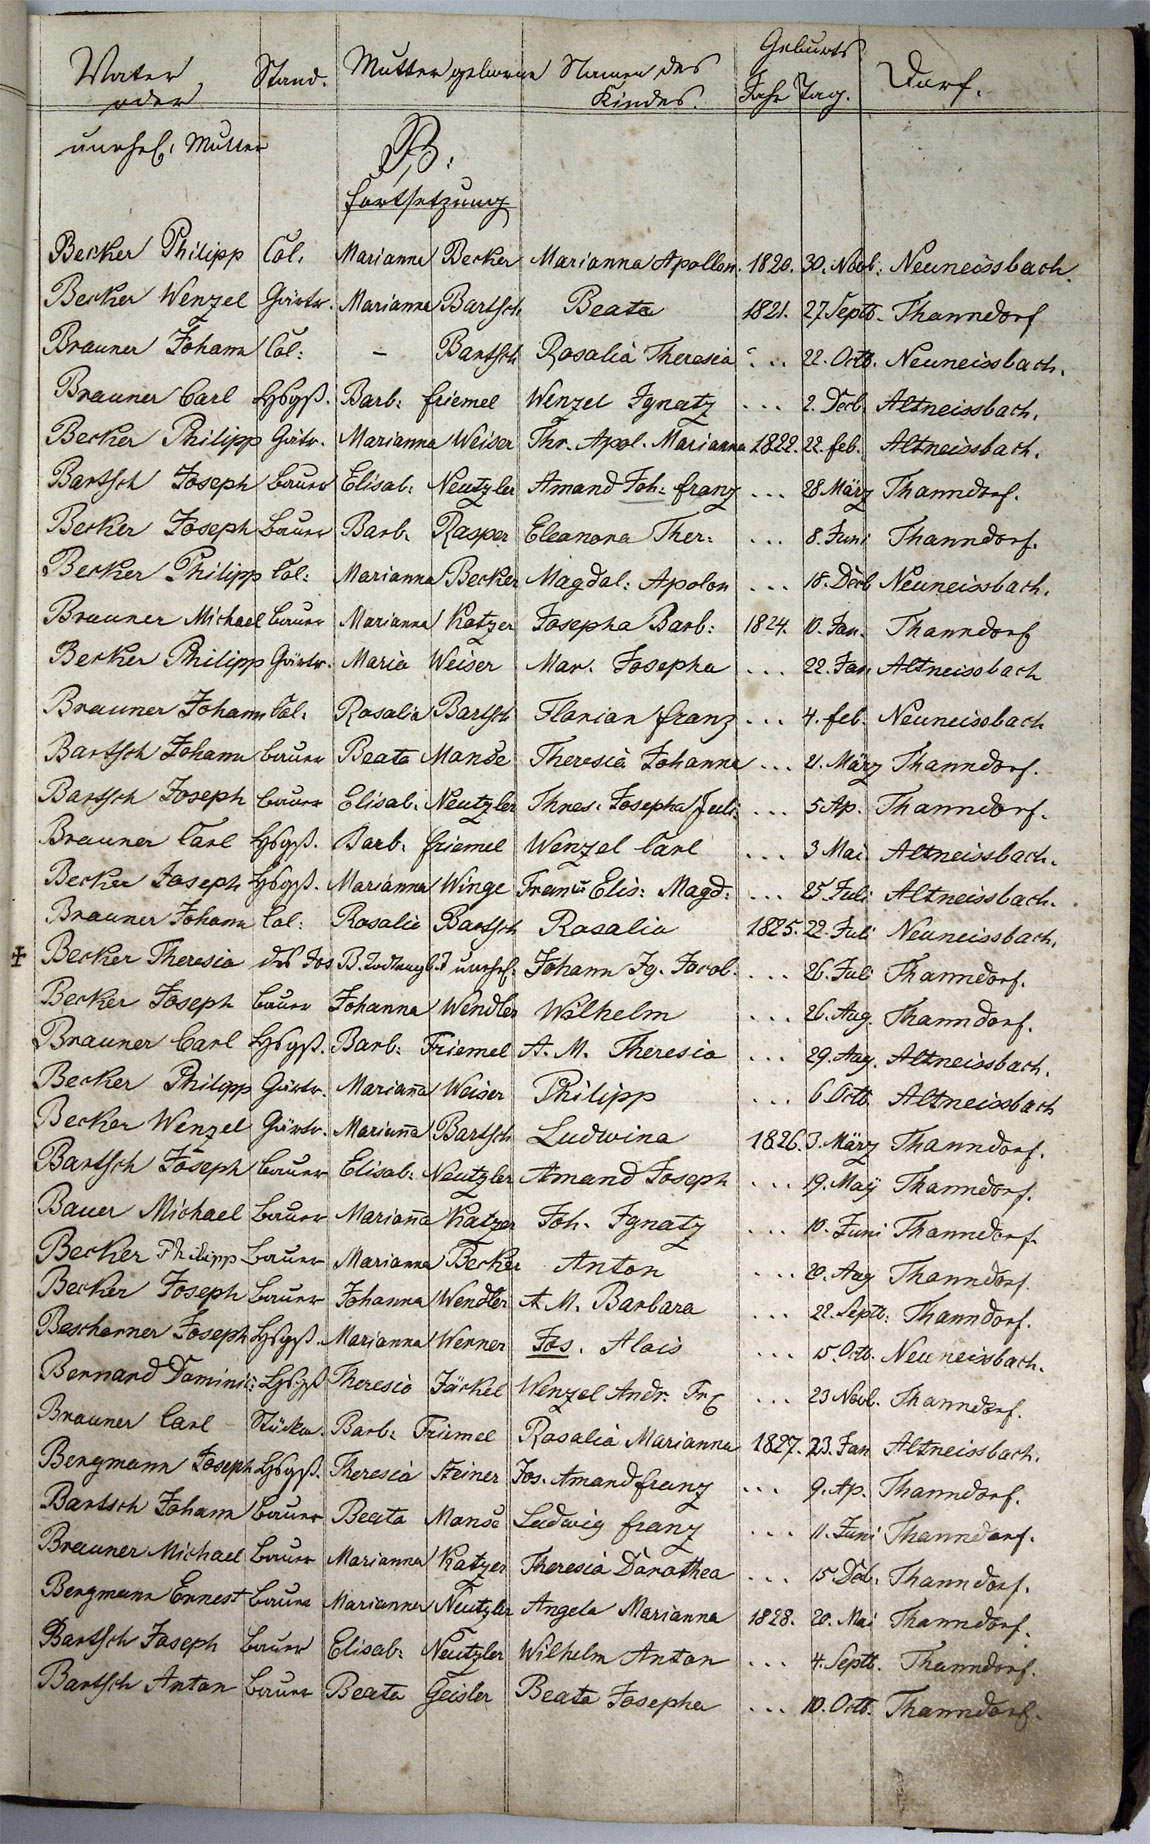 Vater Stand. Mutter geborne Namen des Geburts Dorf.
oder Kindes. Jahr Tag.
unehel: Mutter B:
Fortsetzung
Becker Philipp Col: Marianna Becker Marianna Apollon. 1820. 30. Novb: Neuneissbach.
Becker Wenzel Gärtr. Marianna Bartsch Beata 1821. 27 Septb. Thanndorf
Brauner Johann Col: – Bartsch Rosalia Theresia ... 22. Octb. Neuneissbach.
Brauner Carl Hsgß. Barb: Friemel Wenzel Ignatz ... 2. Decb. Altneissbach.
Becker Philipp Gärtr. Marianna Weiser Thr. Apol. Marianna 1822. 22. feb. Altneissbach.
Bartsch Joseph Bauer Elisab: Neutzler Amand Joh: Franz ... 28 März Thanndorf.
Becker Joseph Bauer Barb: Rasper Eleanora Ther: ... 8. Juni Thanndorf.
Becker Philipp Col: Marianna Becker Magdal: Apolon ... 18. Decb Neuneissbach.
Brauner Michael Bauer Marianna Katzer Josepha Barb: 1824. 10. Jan. Thanndorf
Becker Philipp Gärtr. Maria Weiser Mar. Josepha ... 22. Jan Altneissbach
Brauner Johann Col: Rosalia Bartsch Florian Franz ... 4. feb. Neuneissbach
Bartsch Johann Bauer Beata Manse Theresia Johanna ... 21. März Thanndorf.
Bartsch Joseph Bauer Elisab: Neutzler Thres: Josepha Juli: ... 5 Ap. Thanndorf.
Brauner Carl Hsgß. Barb: Friemel Wenzel Carl ... 3 Mai Altneissbach.
Becker Joseph Hsgß. Marianna Winge Elis: Magd: ... 25 Juli Altneissbach.
Brauner Johann Col: Rosalia Bartsch Rosalia 1825. 22. Juli Neuneissbach.
Becker Theresia des Jos B. unehel: Johann Ig. Jacob. ... 26. Juli Thanndorf.
Becker Joseph Bauer Johanna Wendler Wilhelm ... 26. Aug. Thanndorf.
Brauner Carl Hsgß. Barb: Friemel A. M. Theresia ... 29. Aug. Altneissbach.
Becker Philipp Gärtr. Mariana Weiser Philipp ... 6 Octb. Altneissbach
Becker Wenzel Gärtr. Mariana Bartsch Ludwina 1826. 3. März Thanndorf.
Bartsch Joseph Bauer Elisab: Neutzler Amand Joseph ... 19. Maÿ Thanndorf.
Bauer Michael Bauer Mariana Katzer Joh. Ignatz ... 10. Juni Thanndorf.
Becker Philipp Bauer Marianna Becker Anton ... 20. Aug Thanndorf.
Becker Joseph Bauer Johanna Wendler A. M. Barbara ... 22. Septb: Thanndorf.
Bescherner Joseph Hsgß. Marianna Werner Jos. Alois ... 15. Octb. Neuneissbach.
Bernard Dominic: Hsgß Theresia Jäckel Wenzel Andr. Frz ... 23 Novb. Thanndorf.
Brauner Carl Barb: Friemel Rosalia Marianna 1827. 23. Jan Altneissbach.
Bergmann Joseph Hsgß. Theresia Steiner Jos. Amand Franz ... 9. Ap. Thanndorf.
Bartsch Johann Bauer Beata Manse Ludwig Franz ... 11. Juni Thanndorf.
Brauner Michael Bauer Marianna Katzer Theresia Dorothea ... 15 Deb. Thanndorf.
Bergmann Ernest Bauer Marianna Neutzler Angela Marianna 1828. 20. Mai Thanndorf.
Bartsch Joseph Bauer Elisab: Neutzler Wilhelm Anton ... 4. Septb. Thanndorf.
Bartsch Anton Bauer Beata Geisler Beata Josepha ... 10. Octb. Thanndorf.